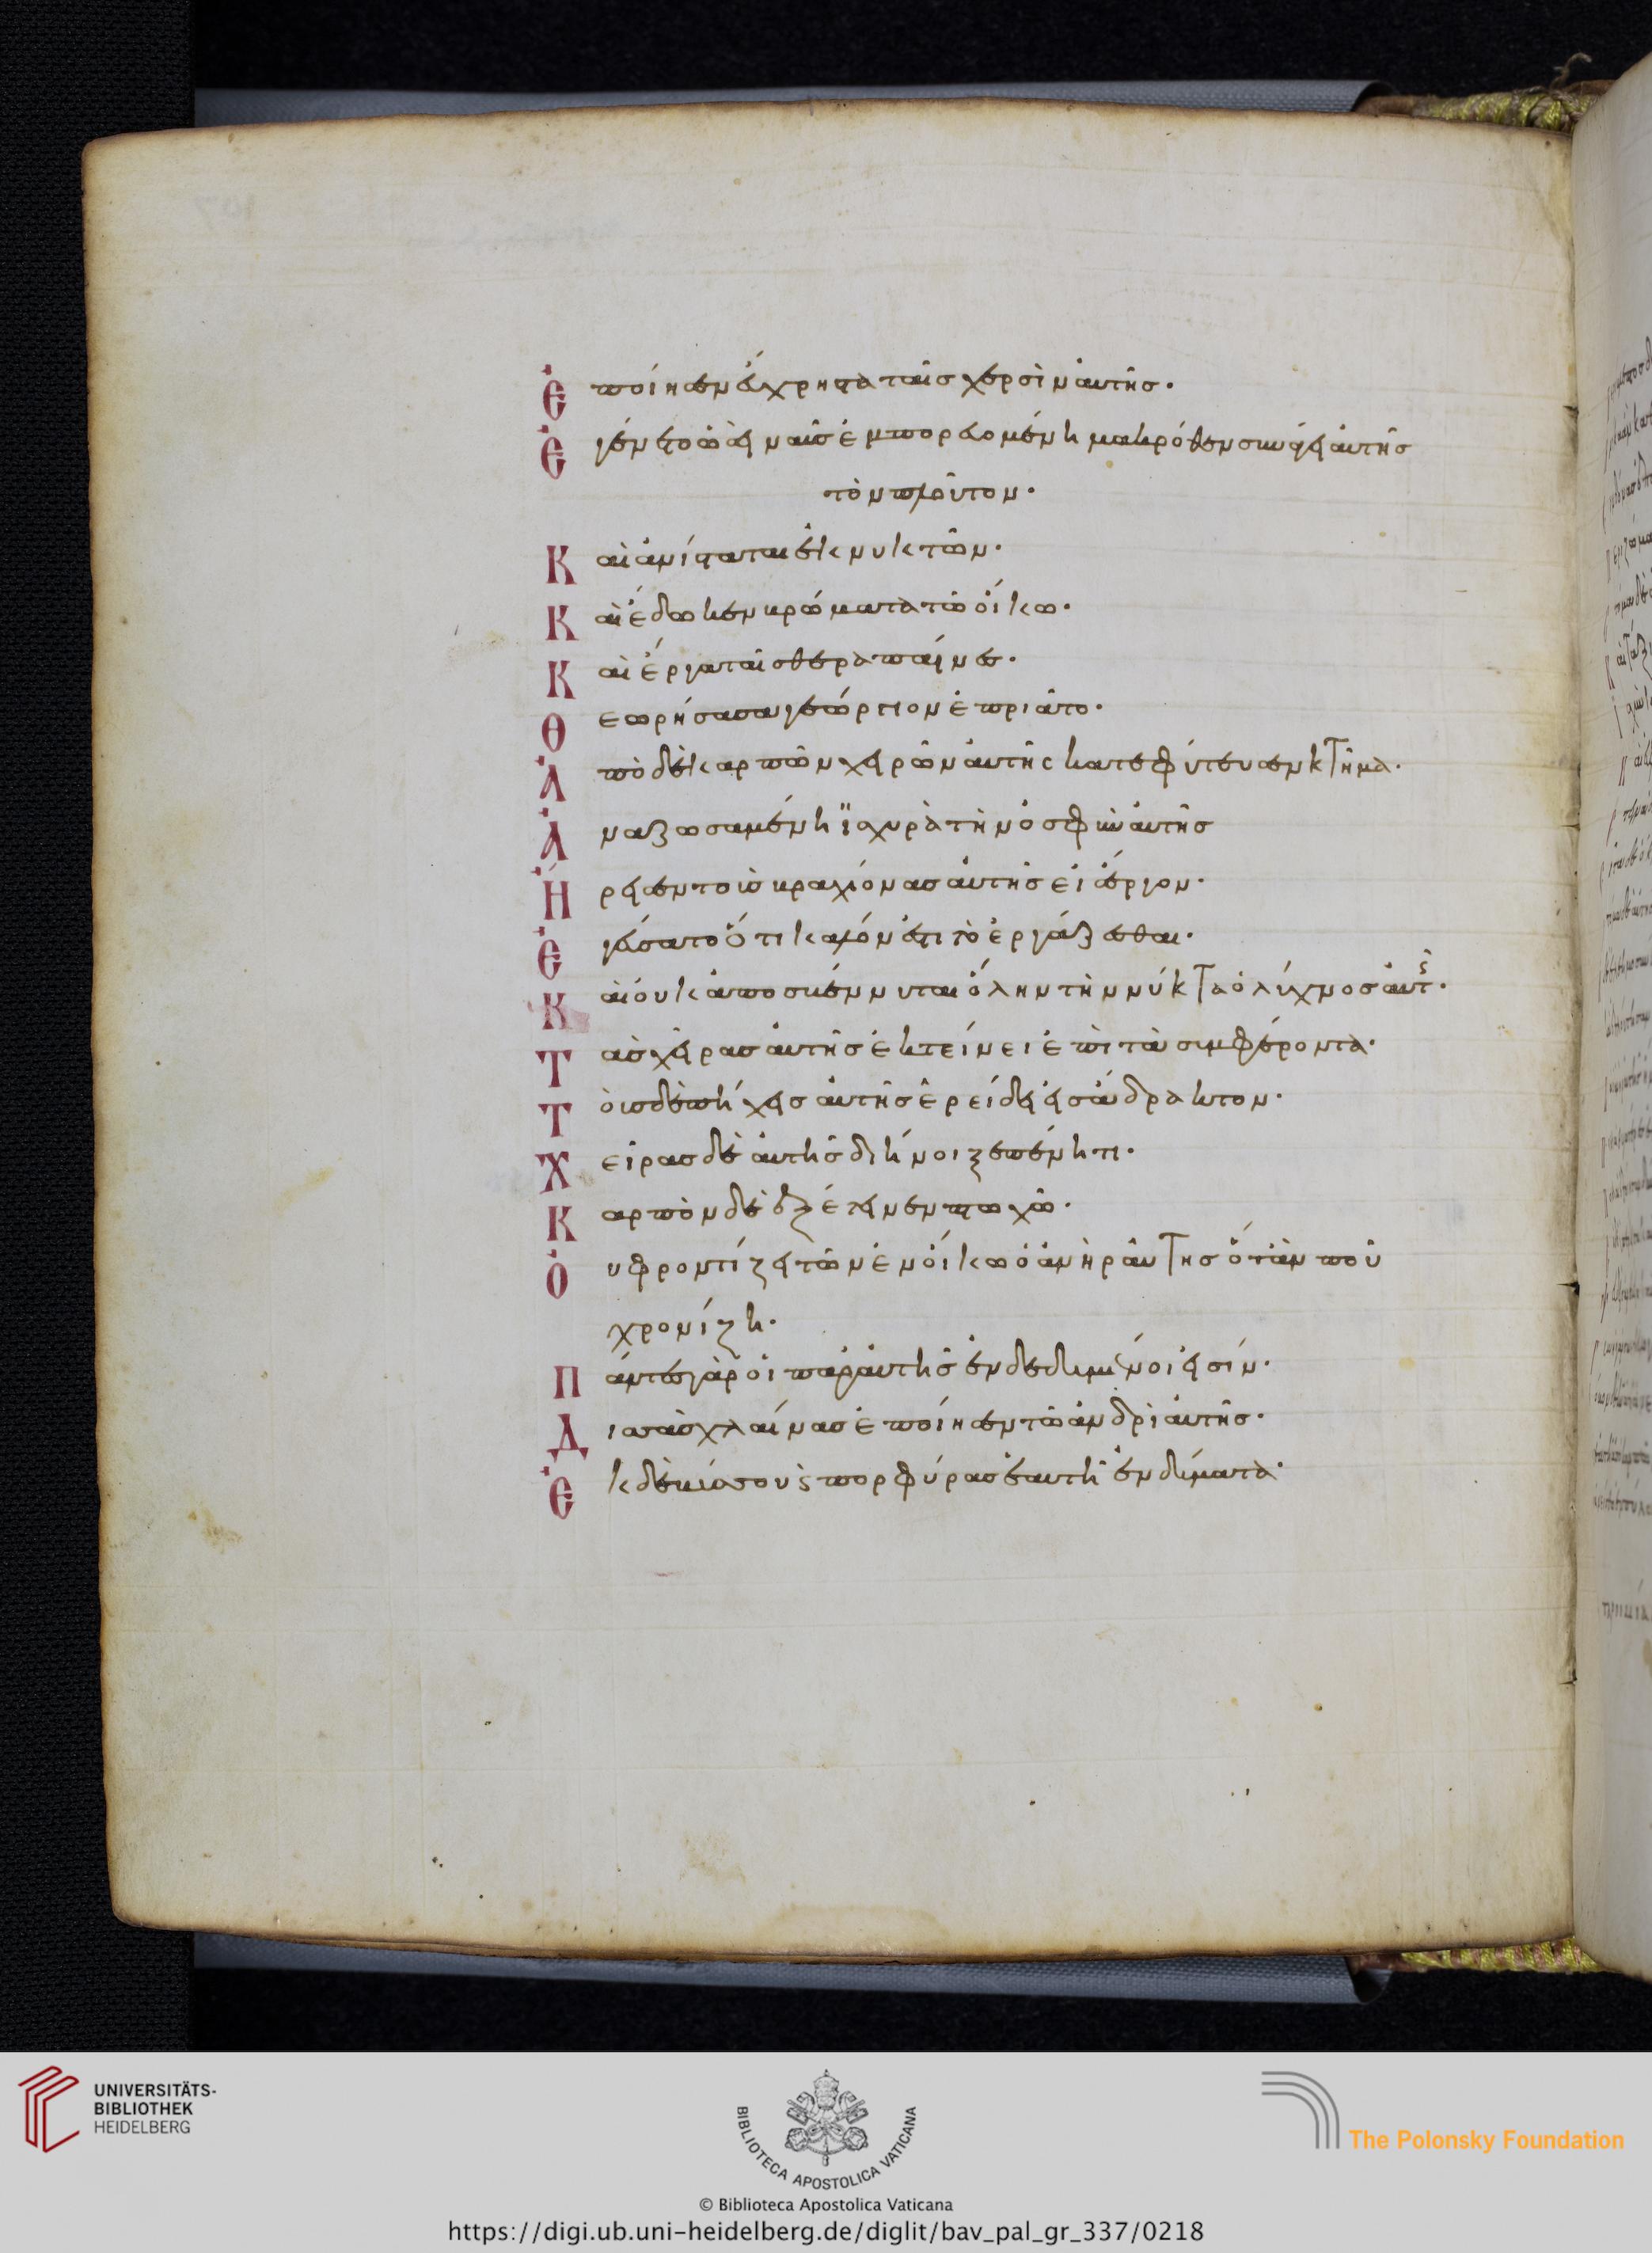 Ἐποίησεν ἔυχρηστα ταῖς χερσὶν ἀυτῆς.
Ἐγένετο ὡσεὶ ναῦς ἐμπορευομένη μακρόθεν συνάγει ἀυτῆς
τὸν πλοῦτον.
Καὶ ἀνίσταται ἐκ νυκτῶν.
Καὶ ἔδωκεν βρώματα τῶ οἴκω.
Καὶ ἔργα ταῖς θεραπαίναις.
Θεωρήσασα γεώργιον ἐπρίατο.
Ἀπὸ δὲ καρπῶν χειρῶν ἀυτῆς κατεφύτευσεν κτῆμα.
Ἀναζωσαμένη ϊσχυρὰ τὴν ὀσφὺν ἀυτῆς
Ἤρεισεν τοὺς βραχίονας ἀυτῆς εἰς ἔργον.
Ἐγεύσατο ὅτι καλόν ἐστι τὸ ἐργάζεσθαι.
Καὶ ὀυκ ἀποσβέννυται ὅλην τὴν νύκτα ὁ λύχνος ἀυτῆς.
Τὰς χεῖρας ἀυτῆς ἐκτείνει ἐπὶ τὰ συμφέροντα.
Τοὺς δὲ πήχεις ἀυτῆς ἐρείδει εἰς ἄδρακτον.
Χεῖρας δὲ ἀυτῆς διήνοιξε πένητι.
Καρπὸν δὲ ἐξέτεινεν πτωχῶ.
Ὀυ φροντίζει τῶν ἐν οἴκω ὁ ἀνὴρ ἀυτῆς ὅταν ποῦ
χρονίζη.
Πάντες γὰρ οἱ παρ' ἀυτῆς ἐνδεδυμένοι εἰσίν.
Δισσὰς χλαίνας ἐποίησεν τῶ ἀνδρὶ ἀυτῆς.
Ἐκ δὲ βύσσου ϗ πορφύρας ἑαυτῆ ἐνδύματα.
UNIVERSITÄTS-
BIBLIOTHEK
HEIDELBERG
BIBLIOTECA APOSTOLICA VATICANA
The Polonsky Foundation
© Biblioteca Apostolica Vaticana
https://digi.ub.uni-heidelberg.de/diglit/bav_pal_gr_337/0218